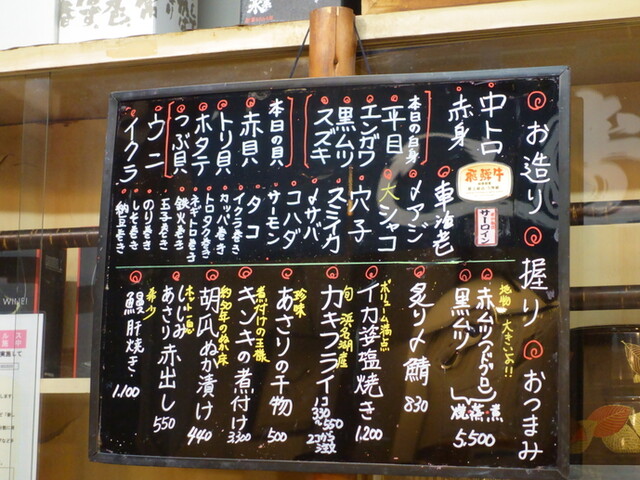 お造り 握り おつまみ
中トロ
赤身
飛騨牛
サーロイン
車海老
本日の白身
平目
エンガワ
黒ムツ
スズキ
〆アジ
大シャコ
穴子
スミイカ
〆サバ
本日の貝
赤貝
トリ貝
ホタテ
つぶ貝
コハダ
サーモン
タコ
イクラ巻き
カッパ巻き
トロタク巻き
ネギトロ巻き
鉄火巻き
玉子巻き
ウニ
イクラ
のり巻き
しそ巻き
納豆巻き
地物 大きいよ!!
赤ムツ(のどぐろ)
黒ムツ
焼 蒸 煮
5,500
炙り〆鯖 830
ボリューム満点
イカ姿塩焼き 1,200
旬 浜名湖産
カキフライ 1コ 330
2コから注文
珍味
あさりの干物 500
煮付けの王様
キンキの煮付け 3300
約20年のぬか床
胡瓜ぬか漬け 440
ホッと一息
しじみ
あさり 赤出し 550
希少
鰻肝焼き 1,100